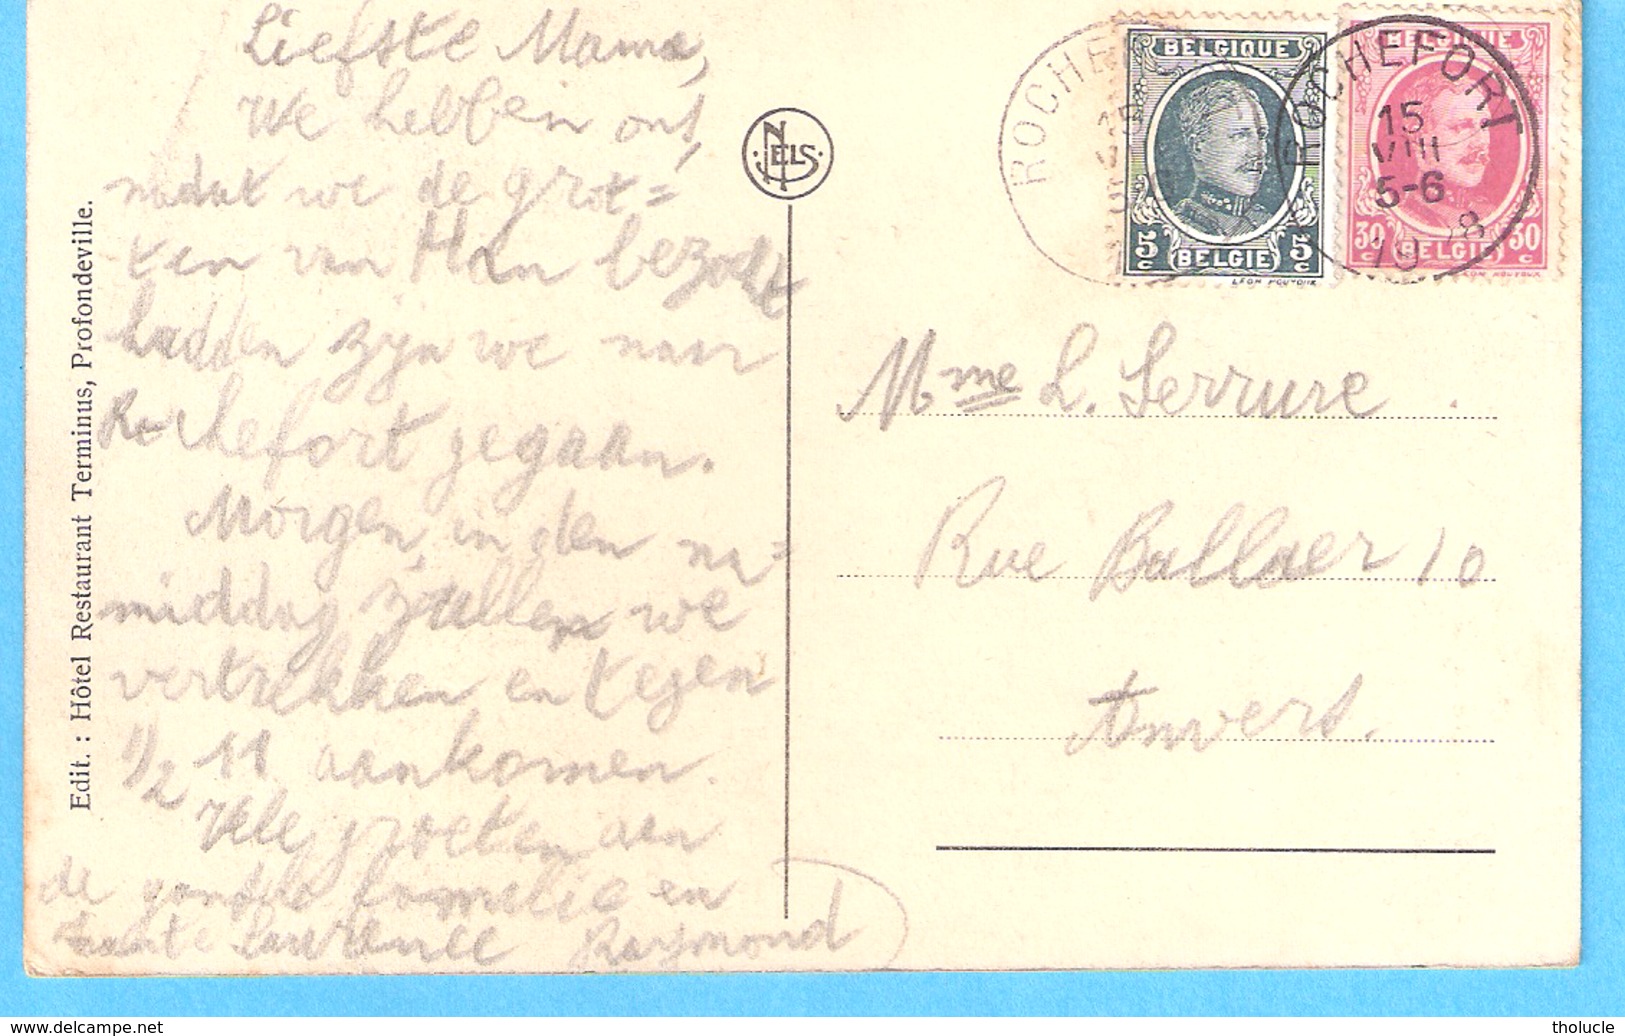 Liefste Mama,
We hebben ons,
nadat we de grot=
ten van Han bezocht
hadden zijn we naar
Rochefort gegaan.
Morgen, in den na=
middag zullen we
vertrekken en tegen
1/2 11 aankomen.
Vele groeten aan
de gansche familie en
tante Laurence Raymond
Edit. : Hôtel Restaurant Terminus, Profondeville.
NELS
ROCHEFORT
15
VIII
BELGIQUE
5c 5c
BELGIË
LEON HOUYOUX
BELGIQUE
ROCHEFORT
15
VIII
5-6
1928
30c 30c
BELGIË
LEON HOUYOUX
Mme L. Serrure.
Rue Ballaer 10
Anvers.
www.delcampe.net
tholucle